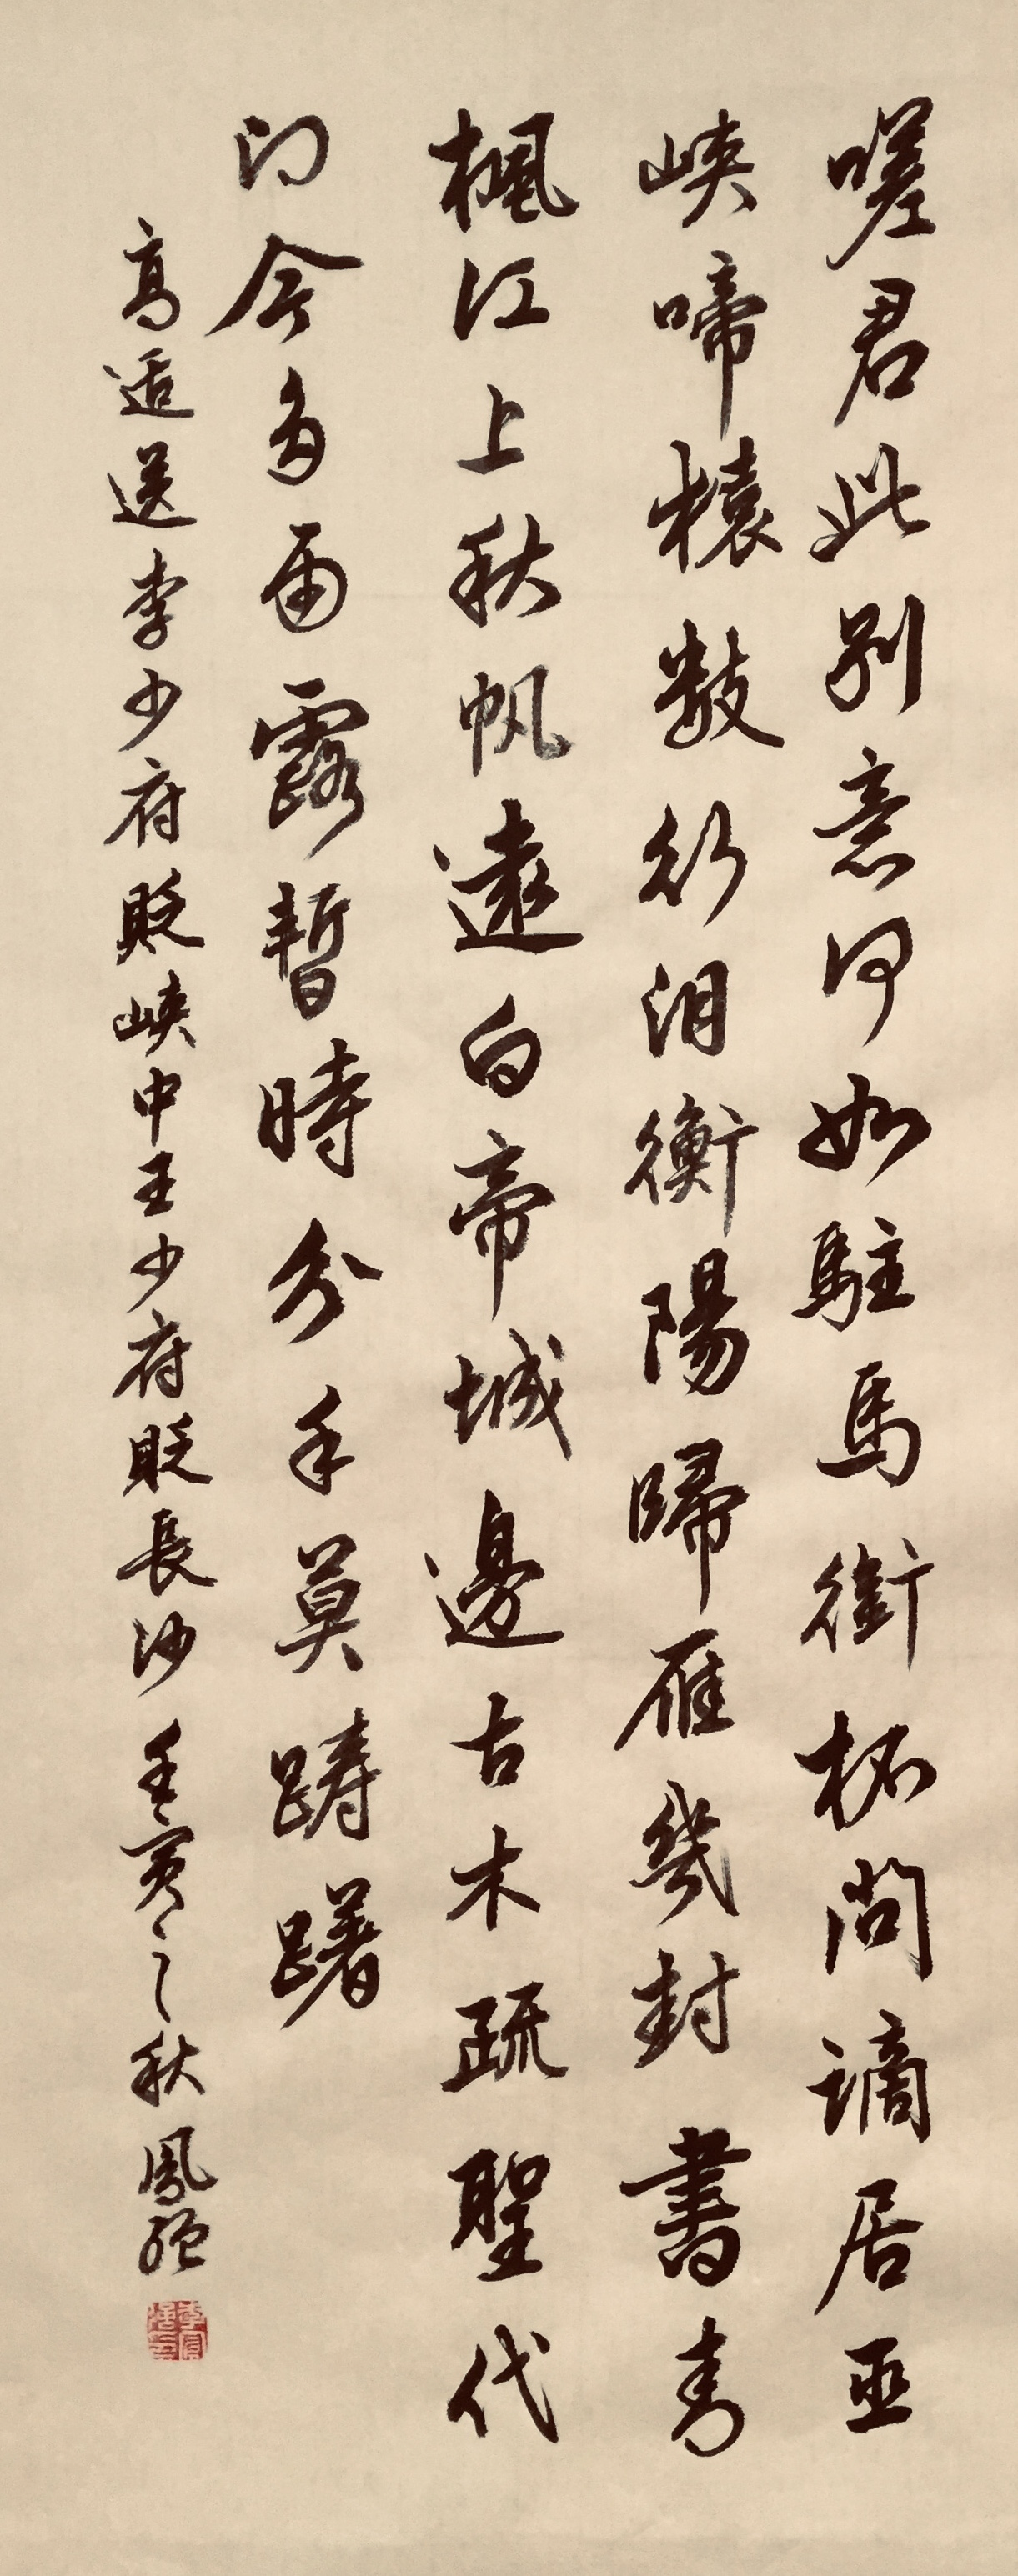 嗟君此別意何如駐馬銜杯問謫居巫
峽啼猿數行泪衡陽歸雁幾封書青
楓江上秋帆遠白帝城邊古木疏聖代
即今多雨露暫時分手莫躊躇
高適送李少府貶峽中王少府貶長沙壬寅之秋鳳